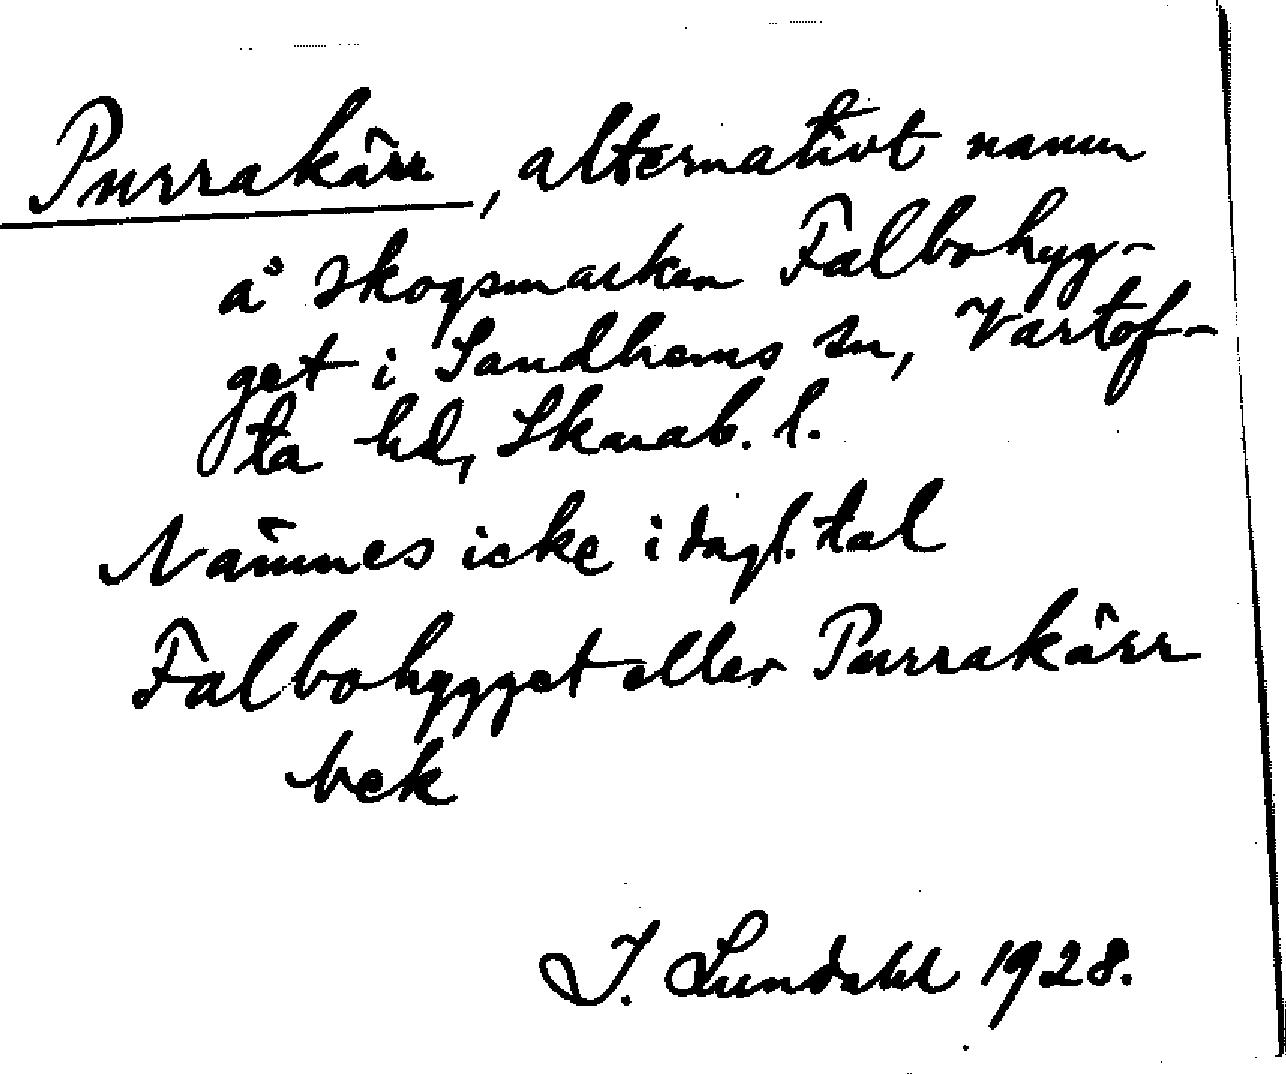 Purrakärr, alternativt namn
å skogsmarken Falbohyg-
get i Sandhems sn, Vartof-
ta hd, Skarab. l.
Nämnes icke i dagl. tal
Falbohygget eller Purrakärr
bek
J. Lundahl 1928.